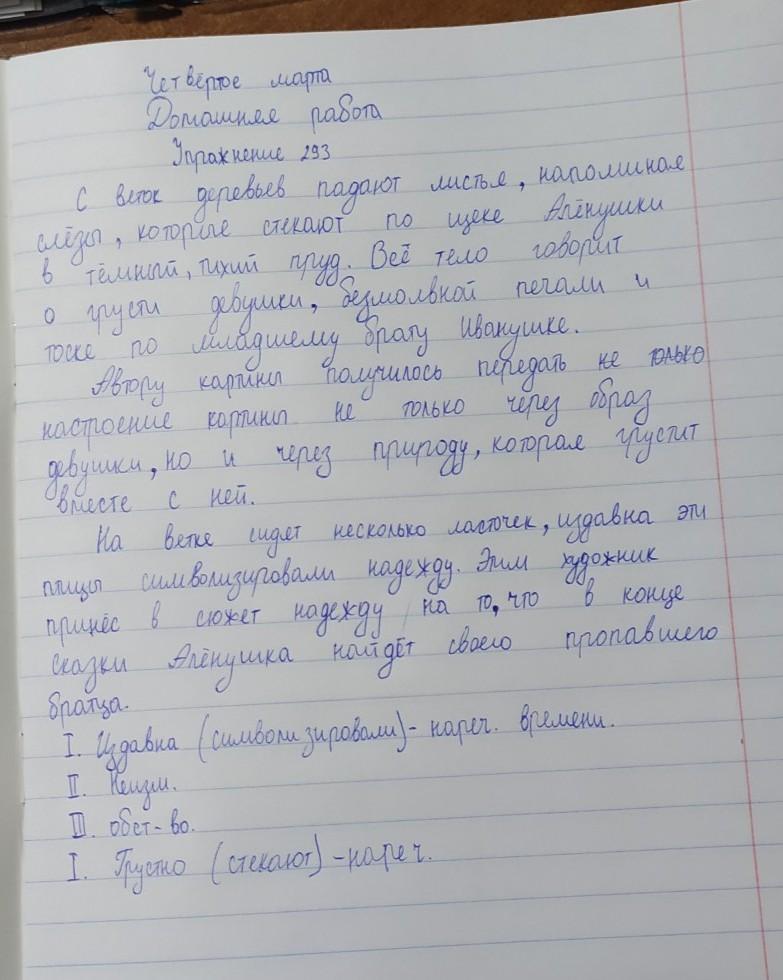 Четвёртое марта
Домашняя работа
Упражнение 293
С веток деревьев падают листья, напоминая
слёзы, которые стекают по щеке Алёнушки
в тёмный, тихий пруд. Всё тело говорит
о грусти девушки, безмолвной печали и
тоске по младшему брату Иванушке.
Автору картины получилось передать не только
настроение картины не только через образ
девушки, но и через природу, которая грустит
вместе с ней.
На ветке сидят несколько ласточек, издавна эти
птицы символизировали надежду. Этим художник
принёс в сюжет надежду на то, что в конце
сказки Алёнушка найдёт своего пропавшего
братца.
I. Издавна (символизировали) - нареч. времени.
II. Неизм.
III. обст-во.
I. Грустно (стекают) - нареч.